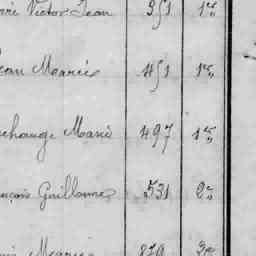 Victor Jean 351 1e
Jean Marie 451 1e
change Marie 497 1e
ançois Guillaume 531 2e
Marie 870 3e